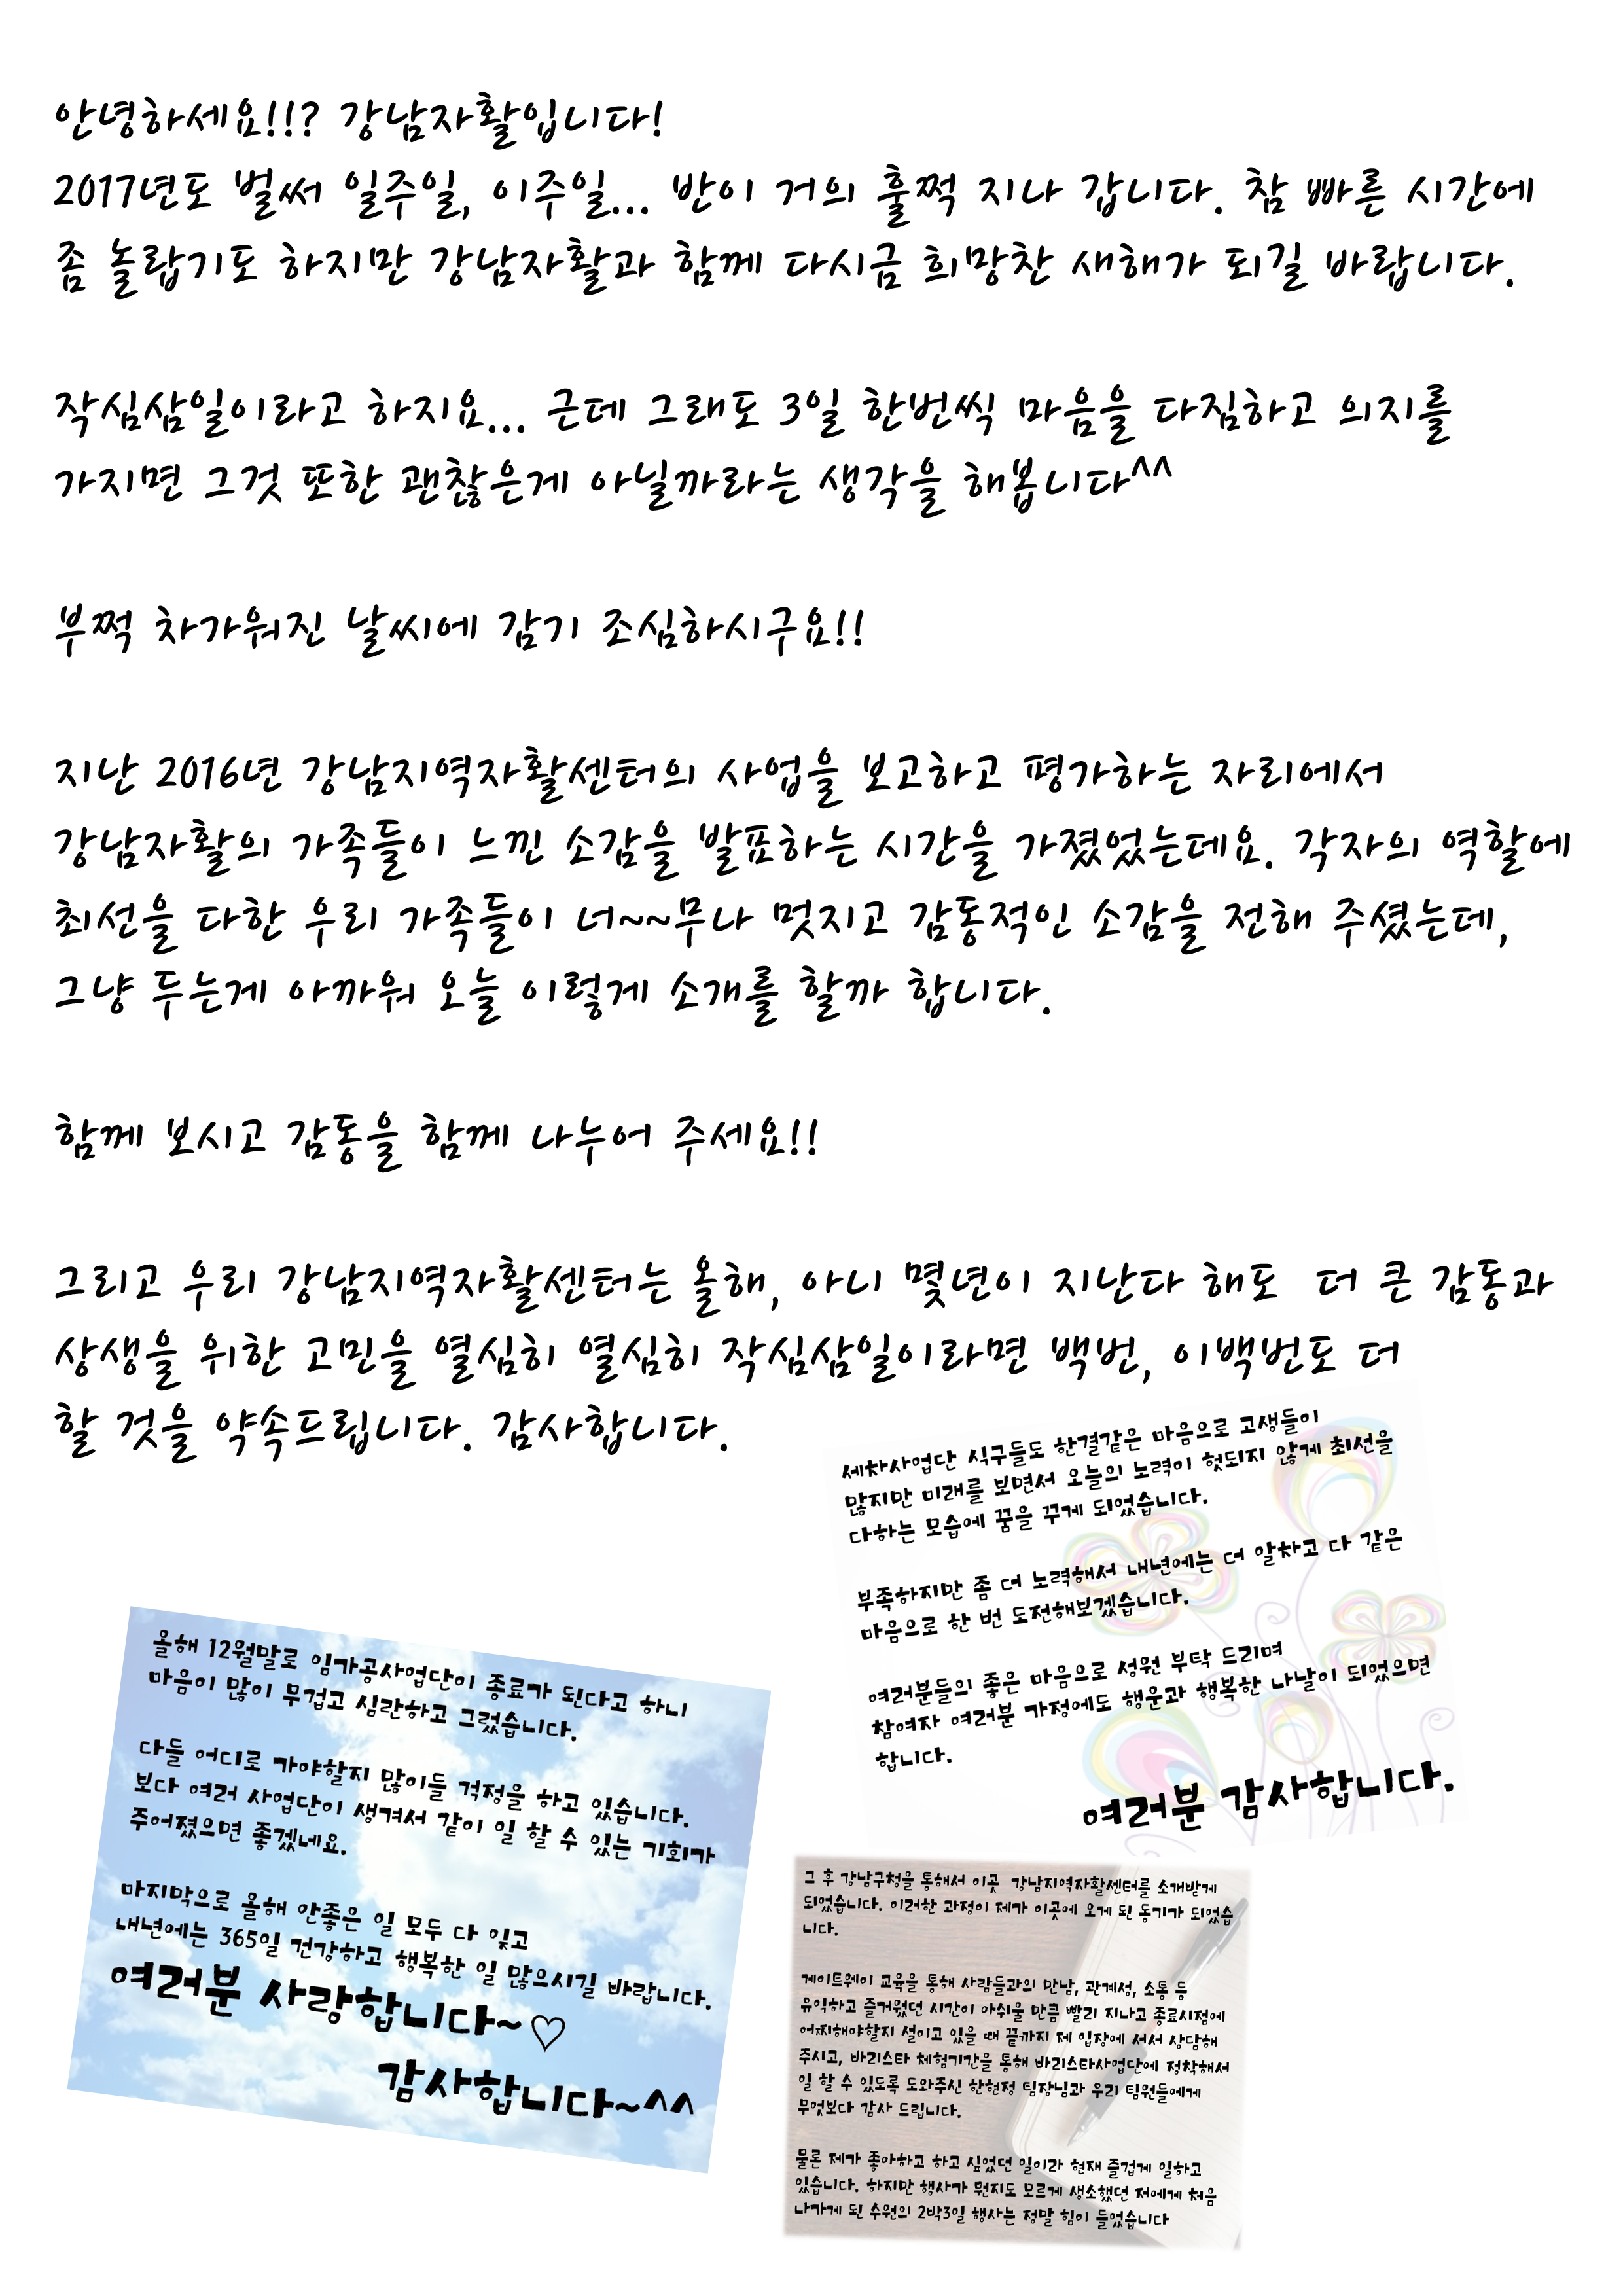 안녕하세요!!? 강남자활입니다!
2017년도 벌써 일주일, 이주일... 반이 거의 훌쩍 지나 갑니다. 참 빠른 시간에
좀 놀랍기도 하지만 강남자활과 함께 다시금 희망찬 새해가 되길 바랍니다.
작심삼일이라고 하지요... 근데 그래도 3일 한번씩 마음을 다짐하고 의지를
가지면 그것 또한 괜찮은게 아닐까라는 생각을 해봅니다^^
부쩍 차가워진 날씨에 감기 조심하시구요!!
지난 2016년 강남지역자활센터의 사업을 보고하고 평가하는 자리에서
강남자활의 가족들이 느낀 소감을 발표하는 시간을 가졌었는데요. 각자의 역할에
최선을 다한 우리 가족들이 너~~무나 멋지고 감동적인 소감을 전해 주셨는데,
그냥 두는게 아까워 오늘 이렇게 소개를 할까 합니다.
함께 보시고 감동을 함께 나누어 주세요!!
그리고 우리 강남지역자활센터는 올해, 아니 몇년이 지난다 해도 더 큰 감동과
상생을 위한 고민을 열심히 열심히 작심삼일이라면 백번, 이백번도 더
할 것을 약속드립니다. 감사합니다.
세차사업단 식구들도 한결같은 마음으로 고생들이
많지만 미래를 보면서 오늘의 노력이 헛되지 않게 최선을
다하는 모습에 꿈을 꾸게 되었습니다.
부족하지만 좀 더 노력해서 내년에는 더 알차고 다 같은
마음으로 한 번 도전해보겠습니다.
여러분들의 좋은 마음으로 성원 부탁 드리며
참여자 여러분 가정에도 행운과 행복한 나날이 되었으면
합니다.
여러분 감사합니다.
올해 12월말로 임가공사업단이 종료가 된다고 하니
마음이 많이 무겁고 심란하고 그렀습니다.
다들 어디로 가야할지 많이들 걱정을 하고 있습니다.
보다 여러 사업단이 생겨서 같이 일 할 수 있는 기회가
주어졌으면 좋겠네요.
마지막으로 올해 안좋은 일 모두 다 잊고
내년에는 365일 건강하고 행복한 일 많으시길 바랍니다.
여러분 사랑합니다~♡
감사합니다~^^
그 후 강남구청을 통해서 이곳 강남지역자활센터를 소개받게
되었습니다. 이러한 과정이 제가 이곳에 오게 된 동기가 되었습
니다.
게이트웨이 교육을 통해 사람들과의 만남, 관계성, 소통 등
유익하고 즐거웠던 시간이 아쉬울 만큼 빨리 지나고 종료시점에
어찌해야할지 설이고 있을 때 끝까지 제 입장에 서서 상담해
주시고, 바리스타 체험기간을 통해 바리스타사업단에 정착해서
일 할 수 있도록 도와주신 한현정 팀장님과 우리 팀원들에게
무엇보다 감사 드립니다.
물론 제가 좋아하고 하고 싶었던 일이라 현재 즐겁게 일하고
있습니다. 하지만 행사가 뭔지도 모르게 생소했던 저에게 처음
나가게 된 수원의 2박3일 행사는 정말 힘이 들었습니다